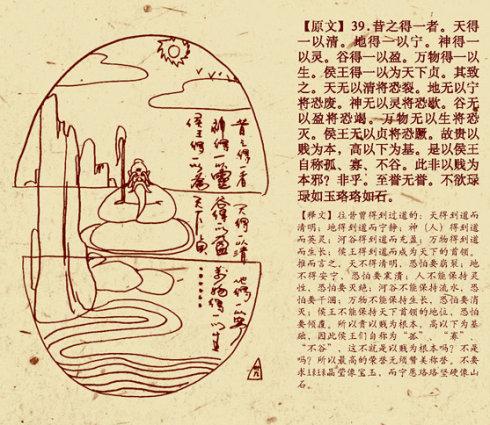 【原文】39.昔之得一者。天得
一以清。地得一以宁。神得一
以灵。谷得一以盈。万物得一以
生。侯王得一以为天下贞。其致
之。天无以清将恐裂。地无以宁
将恐废。神无以灵将恐歇。谷无
以盈将恐竭。万物无以生将恐
灭。侯王无以贞将恐蹶。故贵以
贱为本，高以下为基。是以侯王
自称孤、寡、不谷。此非以贱为
本邪？非乎。至誉无誉。不欲琭
琭如玉珞珞如石。
【释文】往昔曾得到过道的：天得到道而
清明；地得到道而宁静；神（人）得到道
而英灵；河谷得到道而充盈；万物得到道
而生长；侯王得到道而成为天下的首领。
推而言之，天不得清明，恐怕要崩裂；地
不得安宁，恐怕要震溃；人不能保持灵
性，恐怕要灭绝；河谷不能保持流水，恐
怕要干涸；万物不能保持生长，恐怕要消
灭；侯王不能保持天下首领的地位，恐怕
要倾覆。所以贵以贱为根本，高以下为基
础，因此侯王们自称为“孤”、“寡”、
“不谷”，这不就是以贱为根本吗？不是
吗？所以最高的荣誉无须赞美称誉。不要
求琭琭晶莹像宝玉，而宁愿珞珞坚硬像山
石。
昔之得一者 天得一以清 地得一以宁
神得一以靈 谷得一以盈 萬物得一以生
侯王得一以為天下貞